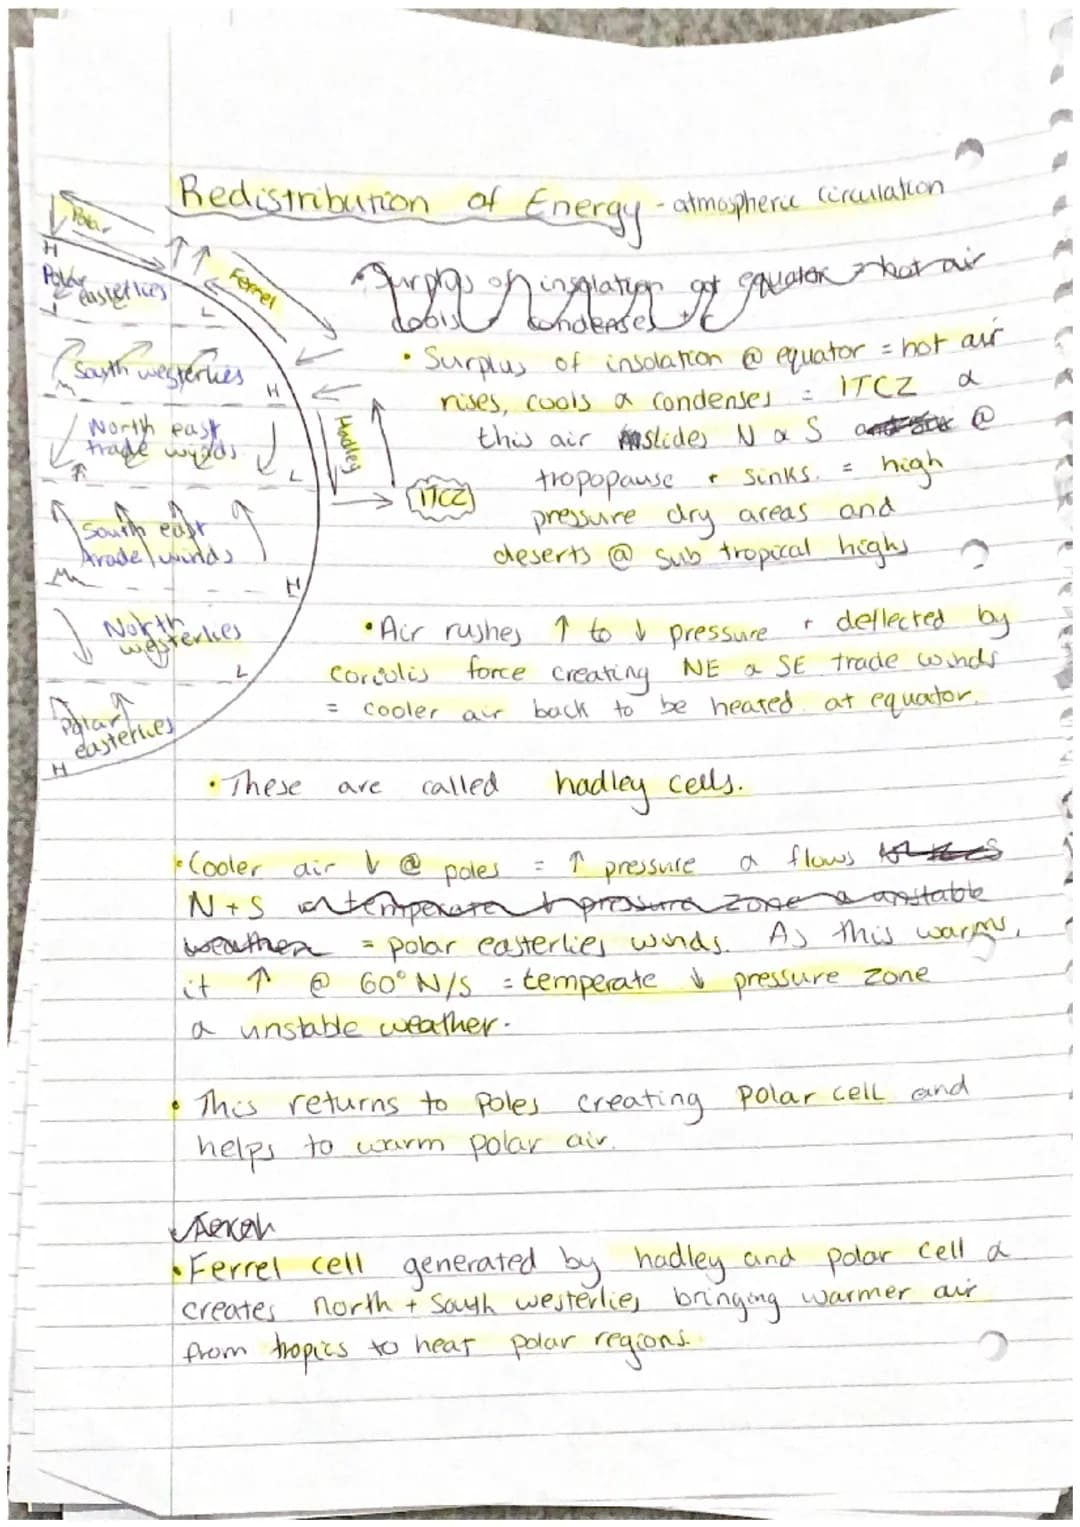 Redistribution of Energy - atmospheric circulation
Polar
H
Polar easterlies
L
Ferrel
South westerlies
H
North east
trade winds
L
Hadley
ITCZ
South east
trade winds
H
North
westerlies
L
Polar
easterlies
H
• Surplus of insolation at equator = hot air
cools condenses
• Surplus of insolation @ equator = hot air
rises, cools & condenses = ITCZ &
this air slides N & S @
tropopause + sinks. = high
pressure dry areas and
deserts @ sub tropical highs
• Air rushes ↑ to ↓ pressure + deflected by
coriolis force creating NE & SE trade winds
= cooler air back to be heated at equator.
• These are called hadley cells.
• Cooler air ↓ @ poles = ↑ pressure & flows
N + S temperate pressure zone & unstable
weather = polar easterlies winds. As this warms,
it ↑ @ 60° N/S = temperate ↓ pressure zone
& unstable weather.
• This returns to poles creating polar cell and
helps to warm polar air.
• Ferrel cell generated by hadley and polar cell &
creates north + south westerlies bringing warmer air
from tropics to heat polar regions.